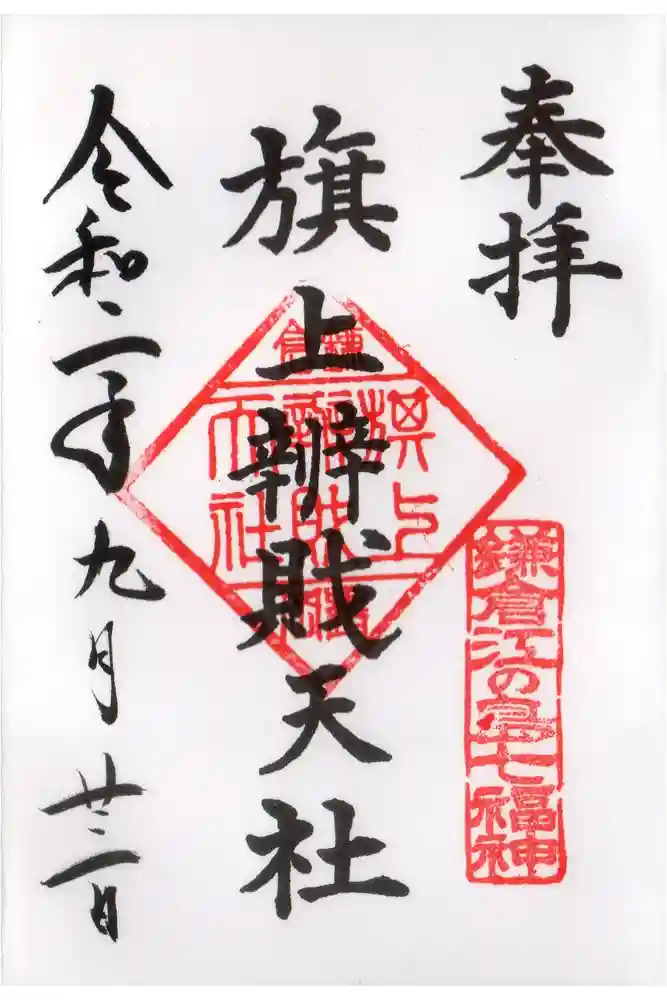 奉拝
鎌倉江の島七福神
旗上辨財天社
鎌倉
旗上
辨財
天社
令和二年九月廿二日